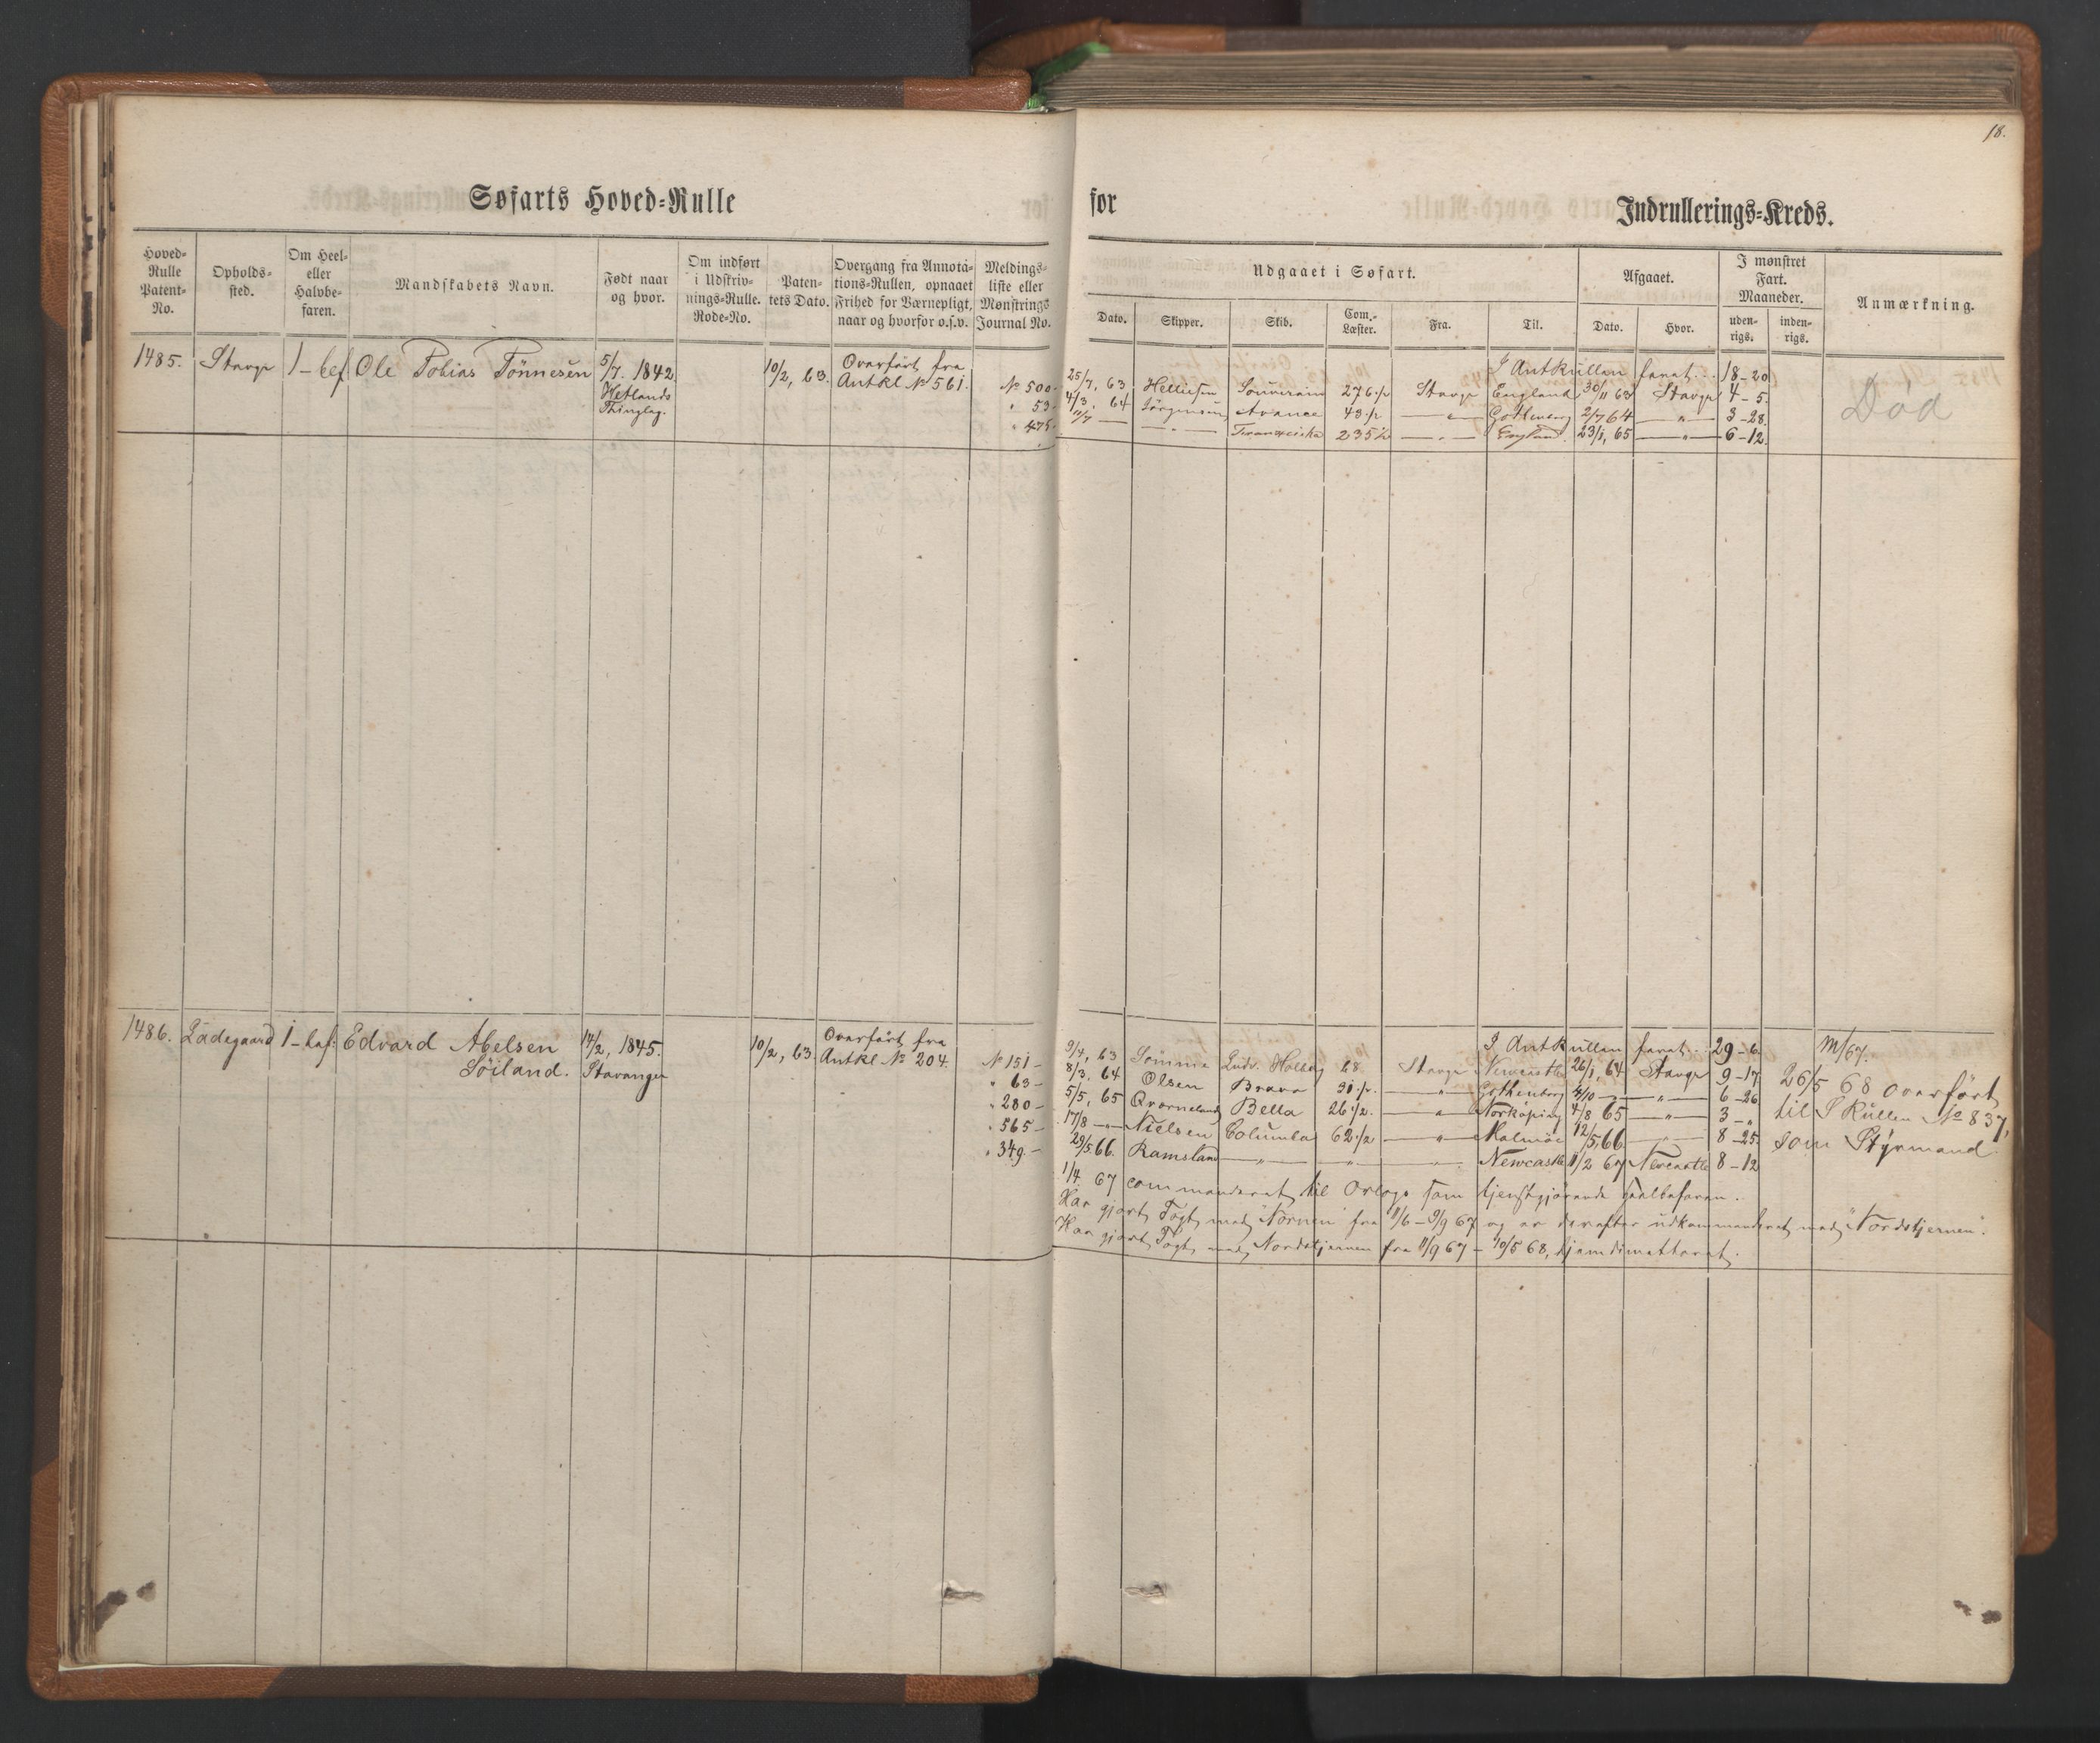 18.
Søfarts Hoved-Rulle for Indrullerings-Kreds.
Hoved-Rulle Patent-No.
Opholds-sted.
Om Heel- eller Halvbe-faren.
Mandskabets Navn.
Født naar og hvor.
Om indført i Udskriv-nings-Rulle. Rode-No.
Paten-tets Dato.
Overgang fra Annota-tions-Rullen, opnaaet Frihed for Værnepligt, naar og hvorfor o.s.v.
Meldings-liste eller Mønstrings Journal No.
Udgaaet i Søfart.
Dato. Skipper. Skib. Com.-Læster. Fra. Til.
Afgaaet.
Dato. Hvor.
I mønstret Fart. Maaneder.
uden-rigs. inden-rigs.
Anmærkning.
1485. Stavgr 1 - bef Ole Tobias Tönnesen 5/7. 1842. 10/2, 63. Overført fra
Hetlands Antkl № 561.
Thinglag.
I AntRullen faret... 18-20
№ 500- 25/7, 63 Helliesen Souverain 276./2 Stavgr England 30/11 63 Stavgr 4-5.
" 53- 4/3, 64 Jörgensen Avance 43./2 — " — Gothenborg 2/7 64 — " — 3-28.
" 475- 11/7 — — " — Franziska 235½ — " — England. 23/1, 65 — " — 6-12.
Död
1486. Ladegaard 1 - haf. Edvard Abelsen 14/2, 1845. 10/2, 63 Overført fra
Söiland. Stavanger Antkl № 204.
I AntRullen faret... 29-6.
№ 151- 9/4, 63 Sömme Ludv. Holberg 68 Stavgr Newcastle 26/1, 64 Stavgr 9-17
" 63- 8/3, 64 Olsen Bravo 31./2. — " — Gothenborg 4/10 — " — 6-26
" 280- 5/5, 65 Qvarneland Bella 26./2. — " — Norköping 4/8 65 — " — 3-"
" 565- 17/8 — " — Nielsen Columba 62./2 — " — Malmöe 12/5, 66 — " — 8-25.
" 349.- 29/5 66. Ramsland — " — — " — — " — Newcastle 11/2 67 Newcastle 8-12
M/67.
26/5 68 overført
til S Rullen № 837,
som Styrmand.
1/4. 67 commanderet til Orlogs som tjenstgjørende Halvbefaren.
Har gjort Togt med "Nornen" fra 11/6 - 9/9 67 og er derefter udkommanderet med "Nordstjernen".
Har gjort Togt med Nordstjernen fra 11/9 67 - 10/5 68, hjemdimitteret.